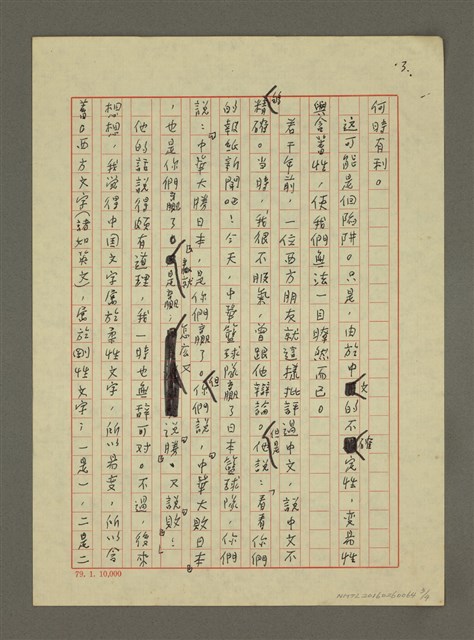 .3.
何時有利。
这可能是個陷阱。只是，由於中文的不確定性，变易性
與含蓄性，使我們無法一目瞭然而已。
若干年前，一位西方朋友就這樣批評過中文，說中文不
精確。当時，我很不服氣，曾跟他辯論。他說：「看看你們
的報紙新聞吧！今天，中華籃球隊贏了日本籃球隊，你們
說：『中華大勝日本』，是你們贏了。但你們說，『中華大敗日本
』，也是你們贏了。贏就是贏；怎么又說勝，又說敗！」
他的話說得頗有道理，我一時也無辭可对。不過，後來
想想，我覺得中国文字屬於柔性文字，所以易变，所以含
蓄。西方文字（諸如英文），屬於剛性文字；一是一，二是二
79. 1. 10,000